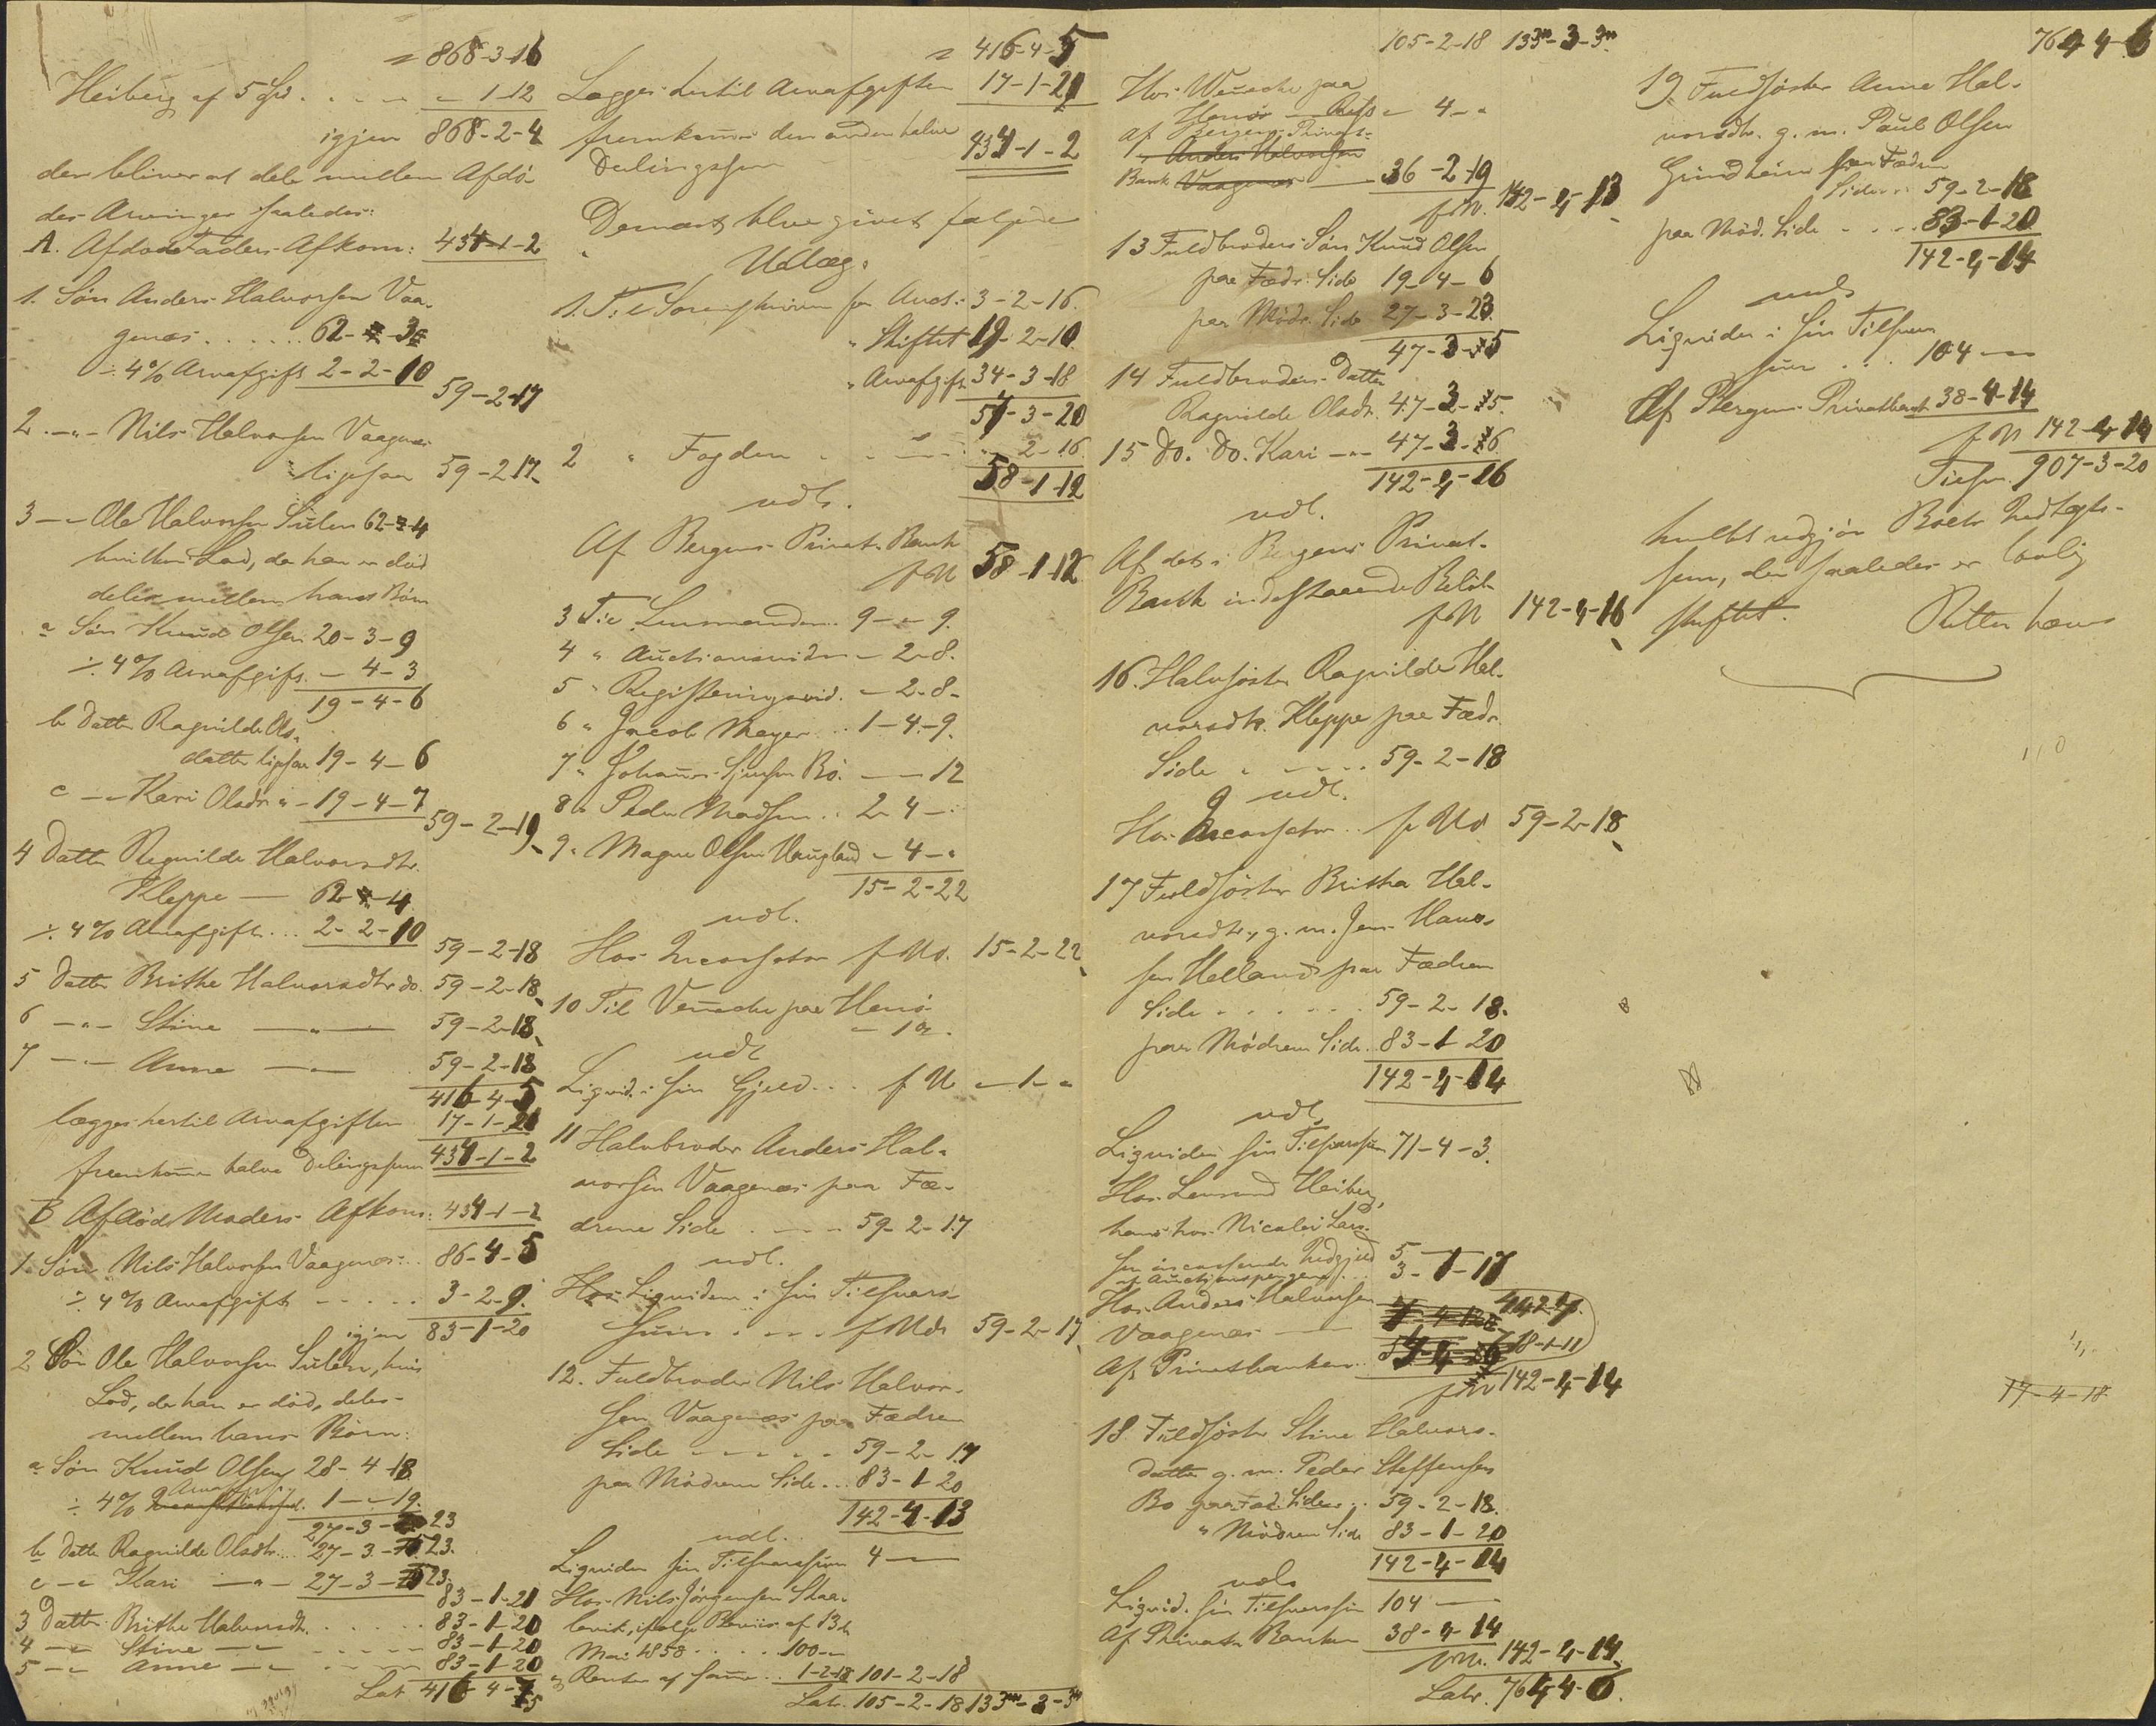 = 868-3-16
Heiberg af 5 Spd. . . . - - 1-12
igjen 868-2-4
der bliver at dele mellem Afdø-
des Arvinger saaledes:
A. Afdødes Faders Afkom: 434-1-2
1. Søn Anders Halvorsen Vaa-
genæs . . . . . . 62- " -3
÷ 4% Arvafgift 2-2-10
59-2-17
2. -"- Nils Halvorsen Vaagenæs
ligesaa 59-2-17
3 -"- Ole Halvorsen Sulen 62-"-4
hvilken Lod, da han er død
deles mellem hans Børn
a Søn Knud Olsen 20-3-9
÷ 4% Arvafgift. - 4-3
19-4-6
b Datter Ragnilde Ols-
datter ligesaa 19-4-6
c -"- Kari Olsdr " - 19-4-7
59-2-19
4 Datter Ragnilde Halvorsdtr.
Kleppe — 62-"-4
÷ 4% Arvafgift . . . 2-2-10
59-2-18
5 Datter Brithe Halvorsdtr do. 59-2-18
6 -"- Stine -"- 59-2-18
7 -"- Anne -"- 59-2-18
416-4-5
lægges hertil Arvafgiften 17-1-21
fremkommer halve Delingssum 434-1-2
B Afdødes Moders Afkom: 434-1-2
1. Søn Nils Halvorsen Vaagenæs . . 86-4-5
÷ 4% Arvafgift . . . . . 3-2-9
igjen 83-1-20
2 Søn Ole Halvorsen Sulen, hvis
Lod, da han er død, deles
mellem hans Børn:
a Søn Knud Olsen 28-4-18
÷ 4% Arvafgift. 1-"-19.
27-3-23
b Datter Ragnilde Olsdtr. . . 27-3-23.
c -"- Kari -"- 27-3-23
83-1-21
3 Datter Brithe Halvorsdtr. . . . . 83-1-20
4 -"- Stine -"- 83-1-20
5 -"- Anne -"- 83-1-20
Lat. 416-4-5
= 416-4-5
Lægges hertil Arvafgiften 17-1-21
fremkommer den anden halve 434-1-2
Delingssum
Dernæst blev givet følgende
Udlæg.
1. Til Sorenskriveren for Auct: 3-2-16.
" Skiftet 19-2-10
" Arvafgift 34-3-18
57-3-20
2 " Fogden . . . . . 2-16.
58-1-12
udl.
Af Bergens Privat-Bank
f N 58-1-12
3 Til Lensmanden . . 9-"-9.
4 " Auctionsvidner - 2-8.
5 " Registeringsvid. - 2-8-
6 " Jacob Meyer . . . 1-4-9.
7 " Johannes Bø. — 12
8 " Peder Madsen . . 2-4-"
9 " Magne Olsen Haugland - 4-"
15-2-22
udl.
Hos Incassator f No. 15-2-22
10 Til Wencke paa Henø
- 1 "
udl
Liqvid. i sin Gjeld . . . f N - 1 - "
11 Halvbroder Anders Hal-
vorsen Vaagenæs paa Fæ-
drene Side . . . 59-2-17
udl.
Liqviden i sin Tilsvars-
sum . . . . f No 59-2-17
12. Fuldbroder Nils Halvor-
sen Vaagenæs paa Fædren
Side . . . . . 59-2-17
paa Mødrene Side . . . 83-1-20
142-4-13
udl.
Liqviden sin Tilsvarssum 4 —
Hos Nils Jørgensen Skaa-
levik, ifølge Beviis af 13de
Mai 1858 . . . . 100-"-
Renter af samme . . 1-2-18 101-2-18
Lat. 105-2-18 133-3-3
105-2-18 133-3-3
Hos Wencke paa
Henø - 4-"
Af Bergens Privat-
Anders Halvorsen
Bank Vaagenæs — 36-2-19
f N. 142-4-13
13 Fuldbroders Søn Knud Olsen
paa Fædr. Side 19-4-6
paa Mødr. Side 27-3-23.
47-3-5
14 Fuldbroders Datter
Ragnilde Olsdr. 47-3-5.
15 Do. Do. Kari -"- 47-3-6
142-4-16
udl.
Af det i Bergens Privat-
Bank indestaaende Beløb
f N 142-4-16
16. Halvsøster Ragnilde Hal-
vorsdtr. Kleppe paa Fædr.
Side . . . . . 59-2-18
udl.
Hos Incassator . . f No 59-2-18
17 Fuldsøster Britha Hal-
vorsdtr., g. m. Jens Hans-
sen Helland paa Fædren
Side . . . . . . 59-2-18.
paa Mødrene Side . . 83-1-20
142-4-14
udl.
Liqviden sin Tilsvarssum 71-4-3.
Hos Lensmand Heiberg,
Nicolai
5
3-1-17
Hos Anders Halvorsen
Vaagenæs —
18-1-11
Af Privatbanken . .
f N 142-4-14
18 Fuldsøster Stine Halvors-
datter g. m. Peder Steffensen
Bø paa Fæd. Side . . 59-2-18.
" Mødrene Side 83-1-20
142-4-14
udl.
Liqvid. sin Tilsvarssum 104 —
Af Privat Banken 38-4-14
f N. 142-4-14
Latr. 764-4-6.
764-4-6
19 Fuldsøster Anne Hal-
vorsdtr. g. m. Paul Olsen
Grindheim paa Fædren
Side . . 59-2-18
paa Mød. Side . . . . 83-1-20
142-4-14
udl.
Liqviden i sin Tilsvars
sum . . . 104 —
Af Bergens Privatbank 38-4-14
f N 142-4-14
907-3-20
hvilket udgjør Boets Indtægts-
sum, der saaledes er lovlig
skiftet.
17-4-18